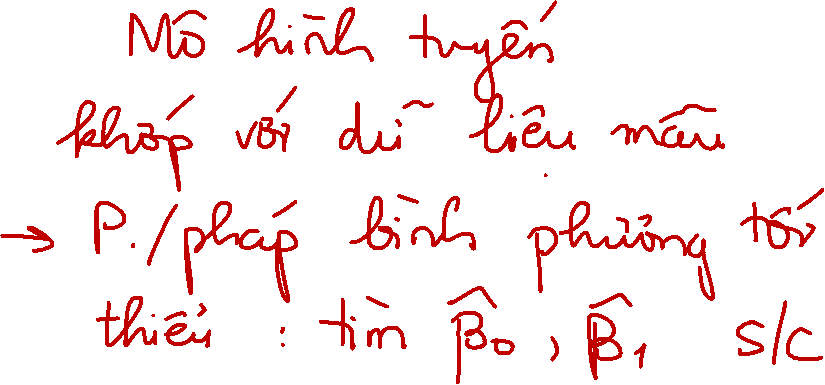 Mô hình tuyến
khớp với dữ liệu mẫu
→ P./pháp bình phương tối
thiểu : tìm β̂₀, β̂₁ s/c